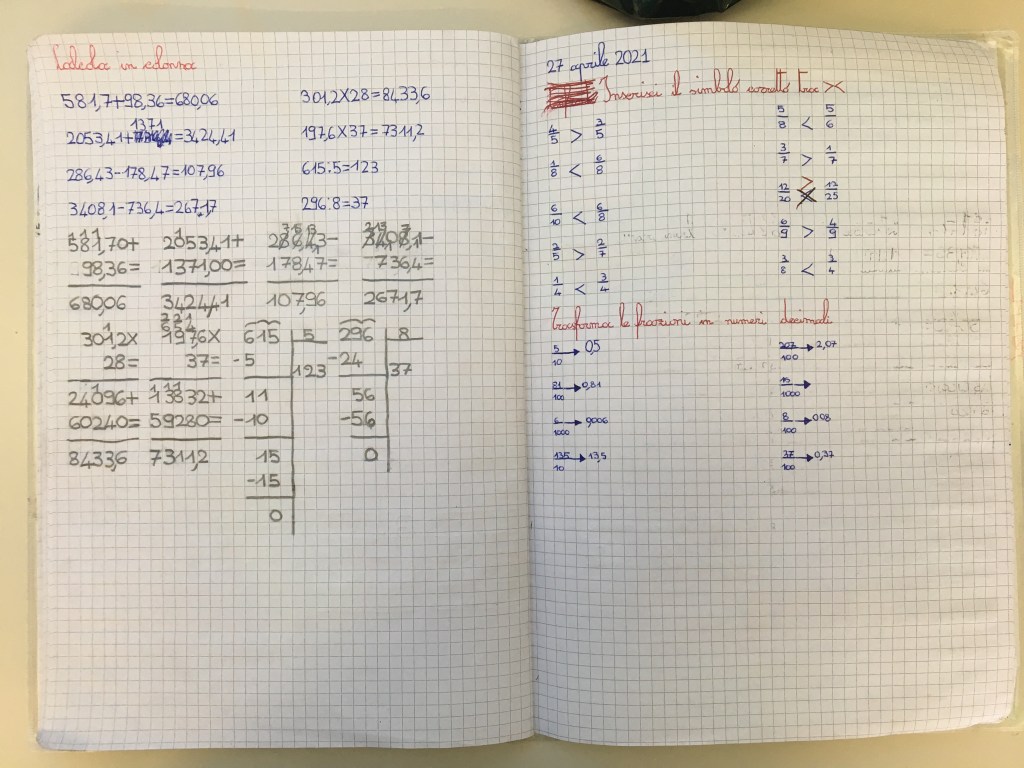 Calcola in colonna
581,7+98,36=680,06
301,2X28=8433,6
1371
2053,41+ =3424,41
197,6X37=7311,2
286,43-178,47=107,96
615:5=123
3408,1-736,4=267,17
296:8=37
581,70+ 2053,41+ 286,43- 3408,1-
98,36= 1371,00= 178,47= 736,4=
680,06 3424,41 107,96 2671,7
301,2x 197,6x 615 5 296 8
28= 37= -5 123 -24 37
24096+ 13832+ 11 56
60240= 59280= -10 -56
8433,6 7311,2 15 0
-15
0
27 aprile 2021
Inserisci il simbolo corretto tra
4/5 > 3/5
5/8 < 5/6
1/8 < 6/8
3/7 > 1/7
12/20 > 12/25
6/10 < 6/8
6/9 > 4/9
2/5 > 2/7
3/8 < 3/4
1/4 < 3/4
Trasforma le frazioni in numeri decimali
5/10 → 0,5
207/100 → 2,07
81/100 → 0,81
15/1000 →
6/1000 → 0,006
8/100 → 0,08
135/10 → 13,5
37/100 → 0,37